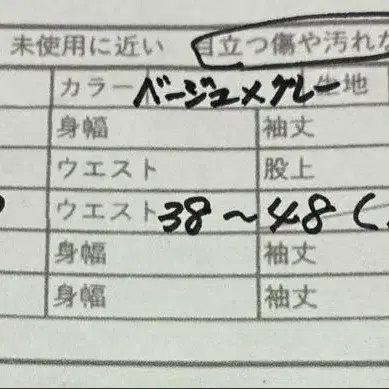 未使用に近い 目立つ傷や汚れた
カラー ベージュ×グレー 生地
身幅 袖丈
ウエスト 股上
ウエスト 38～48 (
身幅 袖丈
身幅 袖丈